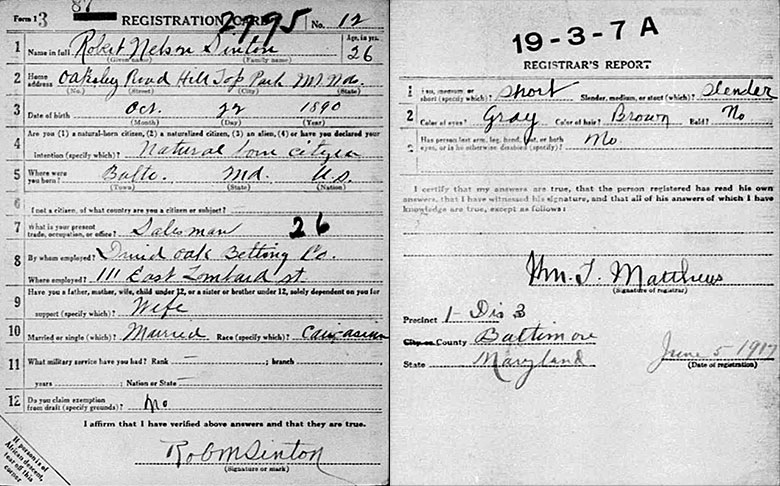 Form 1 3 87 REGISTRATION CARD 2795 No. 12
1 Name in full Robert Nelson Sinton Age, in yrs. 26
(Given name) (Family name)
2 Home address Oaksley Road Hill Top Park Md.
(No.) (Street) (City) (State)
3 Date of birth Oct. 22 1890
(Month) (Day) (Year)
Are you (1) a natural-born citizen, (2) a naturalized citizen, (3) an alien, (4) or have you declared your
4 intention (specify which)? Natural born citizen
5 Where were you born? Balto. Md. U.S.
(Town) (State) (Nation)
6 If not a citizen, of what country are you a citizen or subject?
7 What is your present trade, occupation, or office? Salesman 26
8 By whom employed? Druid Oak Belting Co.
Where employed? 111 East Lombard St.
9 Have you a father, mother, wife, child under 12, or a sister or brother under 12, solely dependent on you for
support (specify which)? Wife
10 Married or single (which)? Married Race (specify which)? Caucasian
11 What military service have you had? Rank – ; branch
years ; Nation or State –
12 Do you claim exemption from draft (specify grounds)? No
I affirm that I have verified above answers and that they are true.
Rob N Sinton
(Signature or mark)
If person is of
African descent,
tear off this
corner
19-3-7 A
REGISTRAR'S REPORT
1 Tall, medium, or short (specify which)? Short Slender, medium, or stout (which)? Slender
2 Color of eyes? Gray Color of hair? Brown Bald? No
3 Has person lost arm, leg, hand, foot, or both
eyes, or is he otherwise disabled (specify)? No.
I certify that my answers are true, that the person registered has read his own
answers, that I have witnessed his signature, and that all of his answers of which I have
knowledge are true, except as follows:
Wm. T. Matthews
(Signature of registrar)
Precinct 1- Dis 3
City or County Baltimore
State Maryland June 5 1917
(Date of registration)